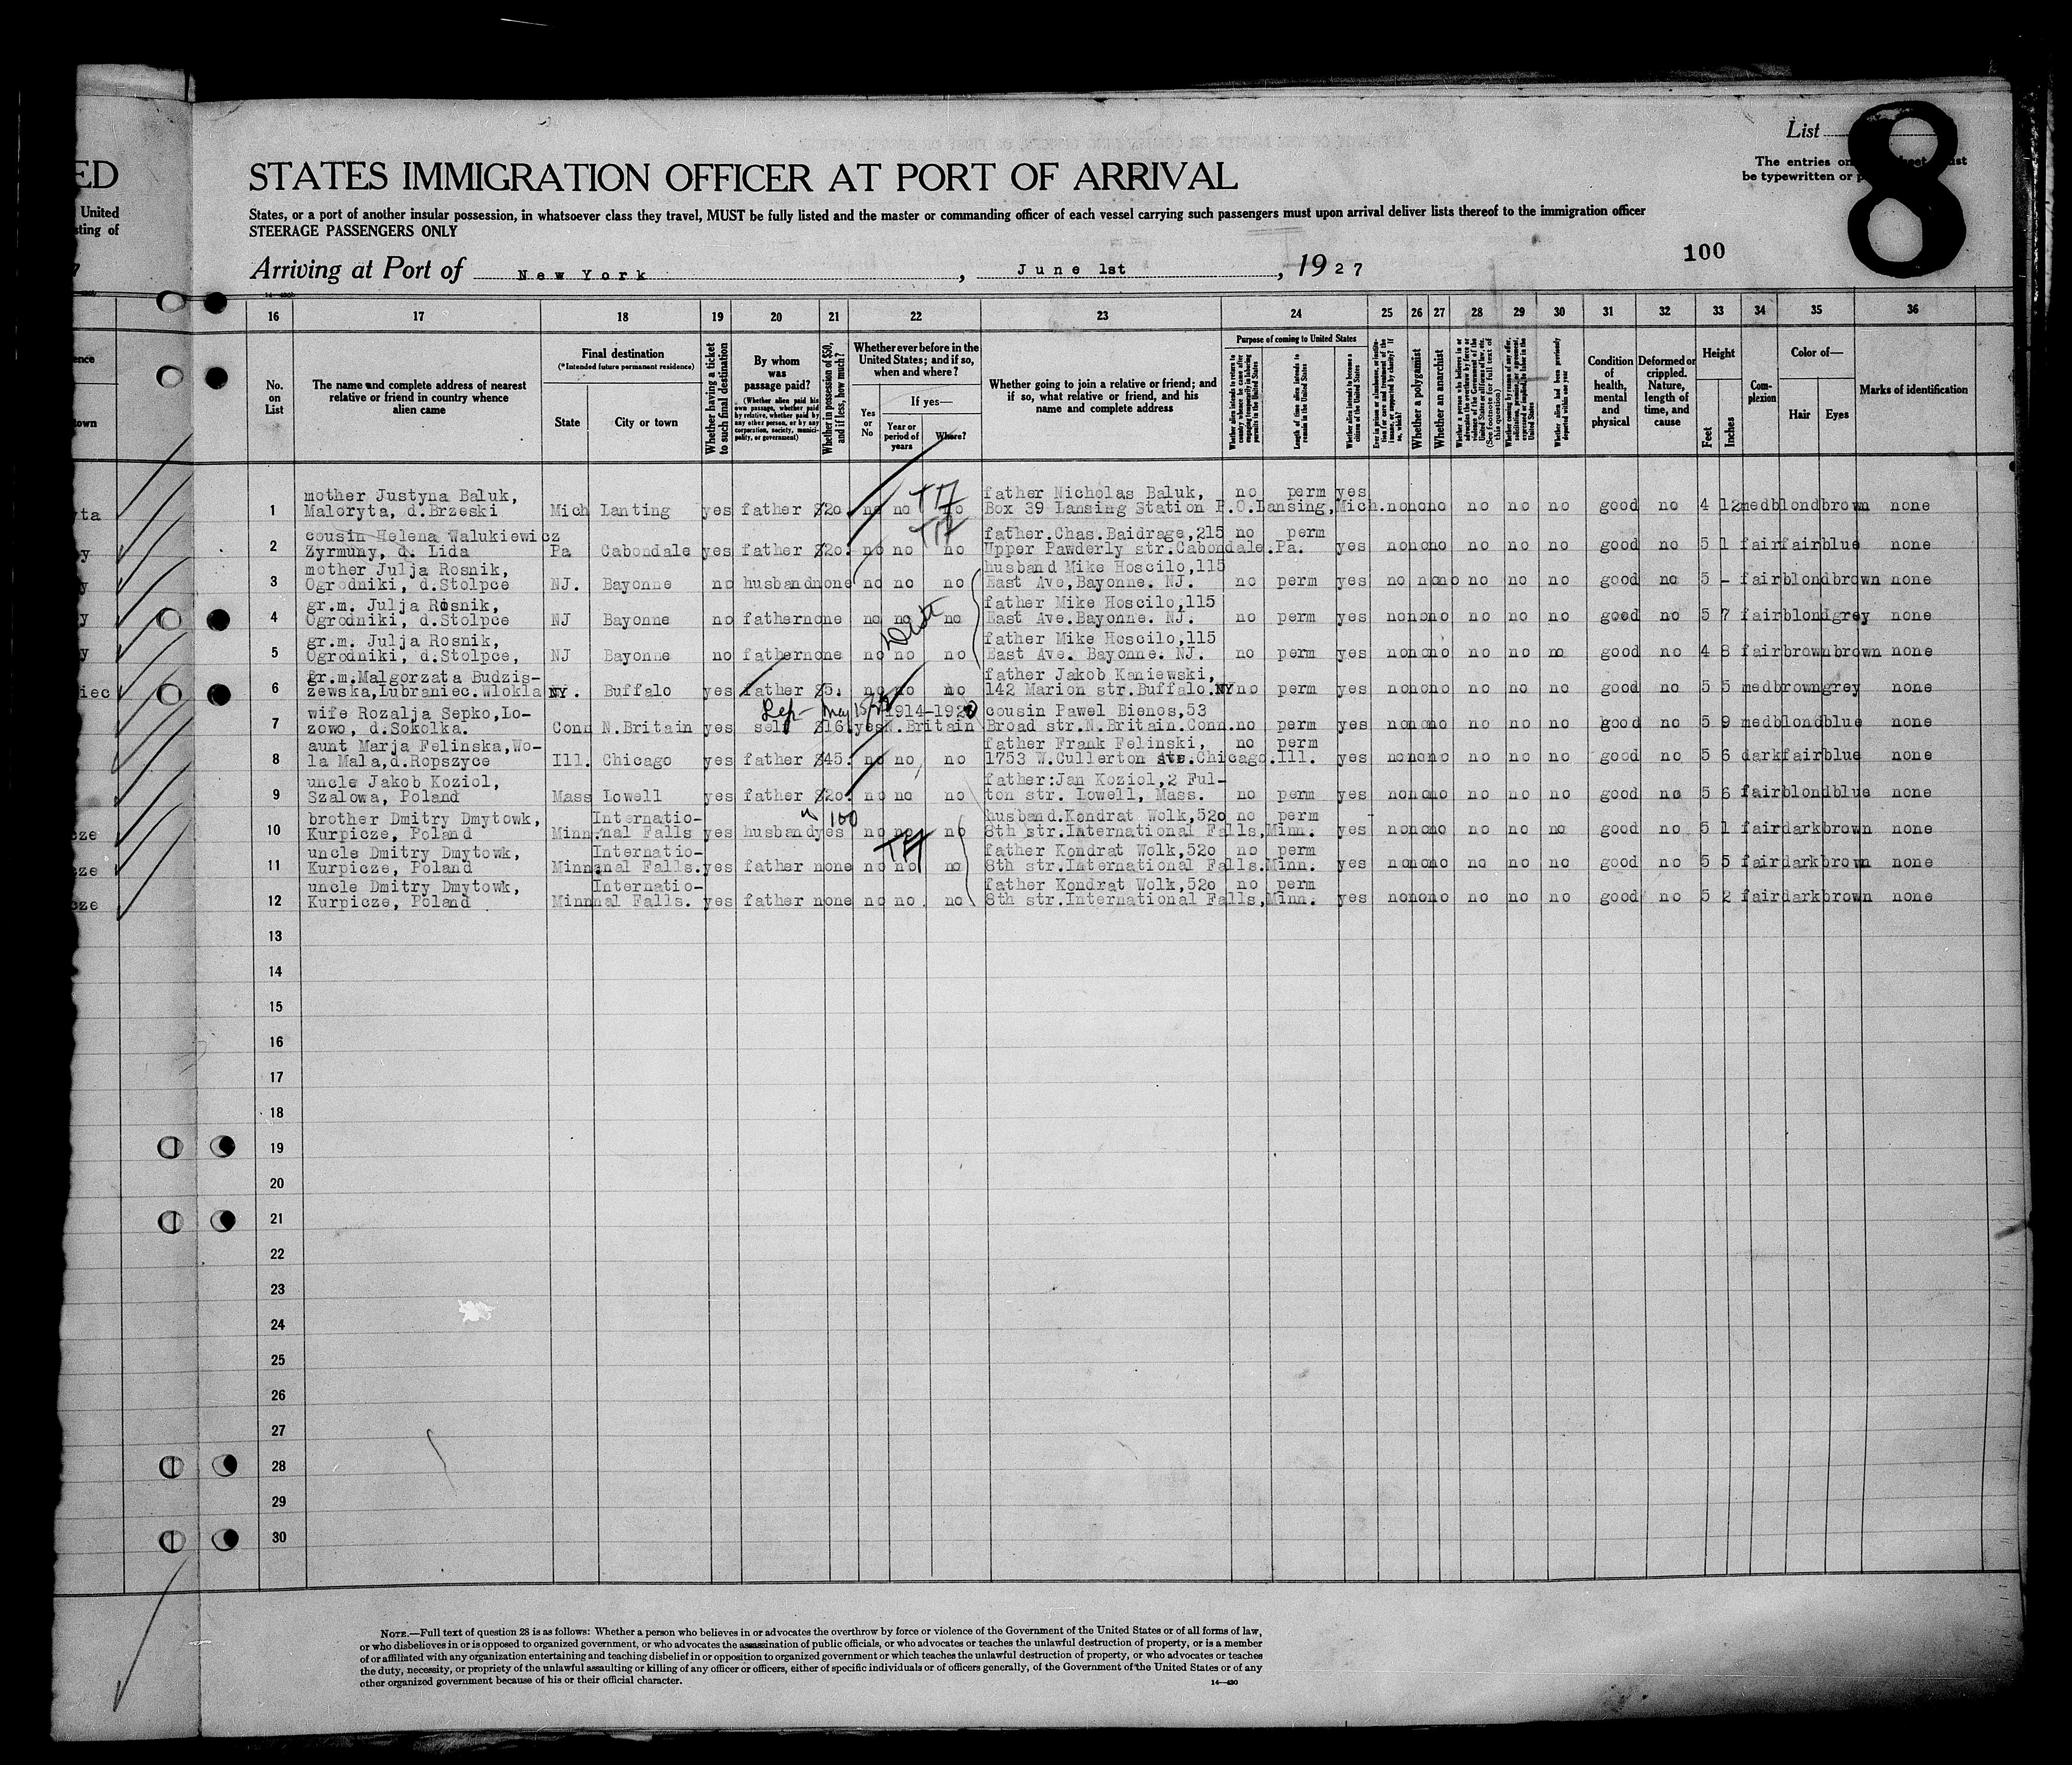 List
8
The entries on
be typewritten or
ED
United
sting of
STATES IMMIGRATION OFFICER AT PORT OF ARRIVAL
States, or a port of another insular possession, in whatsoever class they travel, MUST be fully listed and the master or commanding officer of each vessel carrying such passengers must upon arrival deliver lists thereof to the immigration officer
STEERAGE PASSENGERS ONLY
100
Arriving at Port of New York, June 1st, 1927
16 17 18 19 20 21 22 23 24 25 26 27 28 29 30 31 32 33 34 35 36
No. on List
The name and complete address of nearest relative or friend in country whence alien came
Final destination
(*Intended future permanent residence)
State
City or town
Whether having a ticket to such final destination
By whom was passage paid?
(Whether alien paid his own passage, whether paid by relative, whether paid by any other person, or by any corporation, society, municipality, or government)
Whether in possession of $50, and if less, how much?
Whether ever before in the United States; and if so, when and where?
Yes or No
If yes—
Year or period of years
Where?
Whether going to join a relative or friend; and if so, what relative or friend, and his name and complete address
Purpose of coming to United States
Length of time alien intends to remain in the United States
Whether alien intends to become a citizen of the United States
Whether a polygamist
Whether an anarchist
Whether alien had been previously deported within one year
Condition of health, mental and physical
Deformed or crippled. Nature, length of time, and cause
Height
Feet
Inches
Complexion
Color of—
Hair
Eyes
Marks of identification
mother Justyna Baluk, father Nicholas Baluk, no perm yes
1 Maloryta, d.Brzeski Mich Lanting yes father $20. no no no Box 39 Lansing Station P.O.Lansing,Mich. no no no no no no good no 4 12 med blond brown none
cousin Helena Walukiewicz father.Chas.Baidrage,215 no perm
2 Zyrmuny, d. Lida Pa Cabondale yes father $20. no no no Upper Pawderly str.Cabondale.Pa. yes no no no no no no good no 5 1 fair fair blue none
mother Julja Rosnik, husband Mike Hoscilo,115
3 Ogrodniki, d.Stolpce NJ. Bayonne no husband none no no no East Ave,Bayonne. NJ. no perm yes no no no no no no good no 5 - fair blond brown none
gr.m. Julja Rosnik, father Mike Hoscilo,115
4 Ogrodniki, d.Stolpce NJ Bayonne no father none no no no East Ave.Bayonne. NJ. no perm yes no no no no no no good no 5 7 fair blond grey none
gr.m. Julja Rosnik, father Mike Hoscilo,115
5 Ogrodniki, d.Stolpce, NJ Bayonne no father none no no no East Ave. Bayonne. NJ. no perm yes no no no no no no good no 4 8 fair brown brown none
gr.m.Malgorzata Budzis- father Jakob Kaniewski,
6 zewska,Lubraniec.Wlokla NY. Buffalo yes father $5. no no no 142 Marion str.Buffalo.NY no perm yes no no no no no no good no 5 5 med brown grey none
wife Rozalja Sepko,Lo- 1914-1920 cousin Pawel Bienos,53
7 zowo, d.Sokolka. Conn N.Britain yes self $16. yes N.Britain Broad str.N.Britain.Conn. no perm yes no no no no no no good no 5 9 med blond blue none
aunt Marja Felinska,Wo- father Frank Felinski, no perm
8 la Mala,d.Ropszyce Ill. Chicago yes father $45. no no no 1753 W.Cullerton str.Chicago.Ill. yes no no no no no no good no 5 6 dark fair blue none
uncle Jakob Koziol, father:Jan Koziol,2 Ful-
9 Szalowa, Poland Mass Lowell yes father $20. no no no ton str. Lowell, Mass. no perm yes no no no no no no good no 5 6 fair blond blue none
100
brother Dmitry Dmytowk, Internatio- husband.Kondrat Wolk,520 no perm
10 Kurpicze, Poland Minn. nal Falls yes husband yes no no no 8th str.International Falls,Minn. yes no no no no no no good no 5 1 fair dark brown none
uncle Dmitry Dmytowk, Internatio- father Kondrat Wolk,520 no perm
11 Kurpicze, Poland Minn nal Falls. yes father none no no no 8th str.International Falls.Minn. yes no no no no no no good no 5 5 fair dark brown none
uncle Dmitry Dmytowk, Internatio- father Kondrat Wolk,520 no perm
12 Kurpicze, Poland Minn nal Falls. yes father none no no no 8th str.International Falls,Minn. yes no no no no no no good no 5 2 fair dark brown none
13
14
15
16
17
18
19
20
21
22
23
24
25
26
27
28
29
30
NOTE.—Full text of question 28 is as follows: Whether a person who believes in or advocates the overthrow by force or violence of the Government of the United States or of all forms of law,
or who disbelieves in or is opposed to organized government, or who advocates the assassination of public officials, or who advocates or teaches the unlawful destruction of property, or is a member
of or affiliated with any organization entertaining and teaching disbelief in or opposition to organized government or which teaches the unlawful destruction of property, or who advocates or teaches
the duty, necessity, or propriety of the unlawful assaulting or killing of any officer or officers, either of specific individuals or of officers generally, of the Government of the United States or of any
other organized government because of his or their official character.
14—430